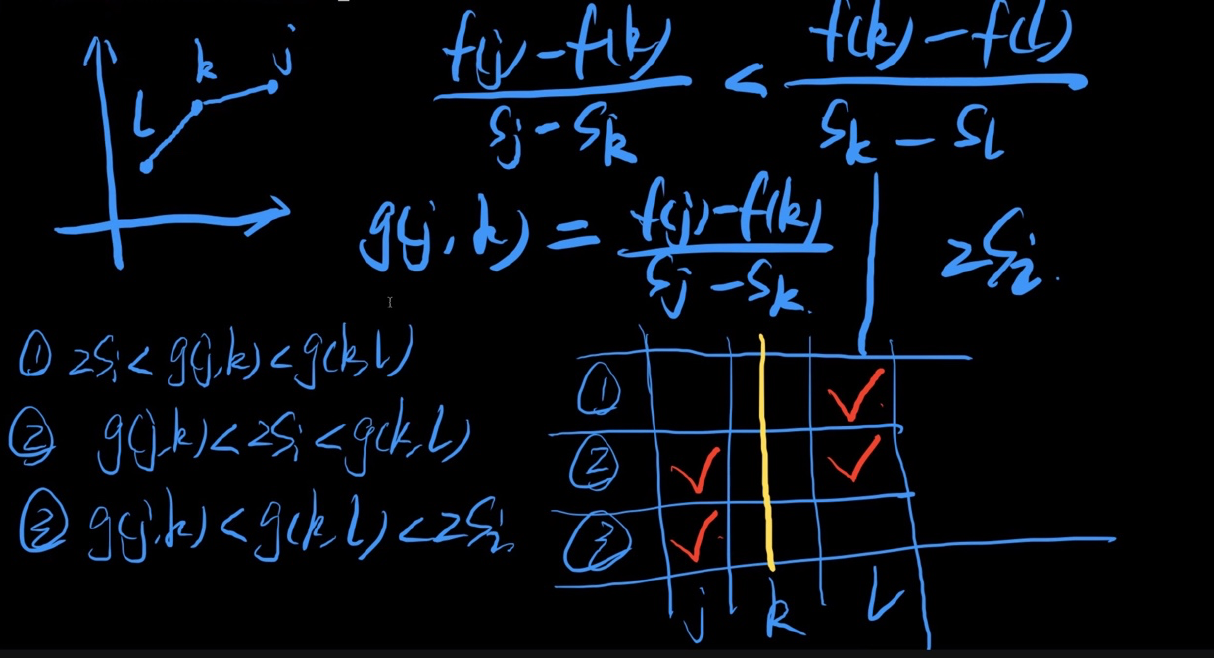 k j
l
f(j) - f(k) / S_j - S_k < f(k) - f(l) / S_k - S_l
g(j, k) = f(j) - f(k) / S_j - S_k
2S_i.
① 2S_i < g(j,k) < g(k,l)
② g(j,k) < 2S_i < g(k,l)
③ g(j,k) < g(k,l) < 2S_i
① ✓
② ✓ ✓
③ ✓
j k l